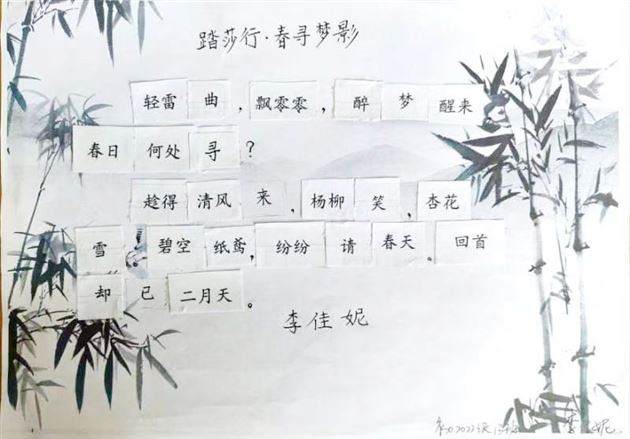 踏莎行·春寻梦影
轻雷曲，飘零零，醉梦醒来
春日何处寻？
趁得清风来，杨柳笑，杏花
雪，碧空纸鸢，纷纷请春天。回首
却已二月天。
李佳妮
初2022级